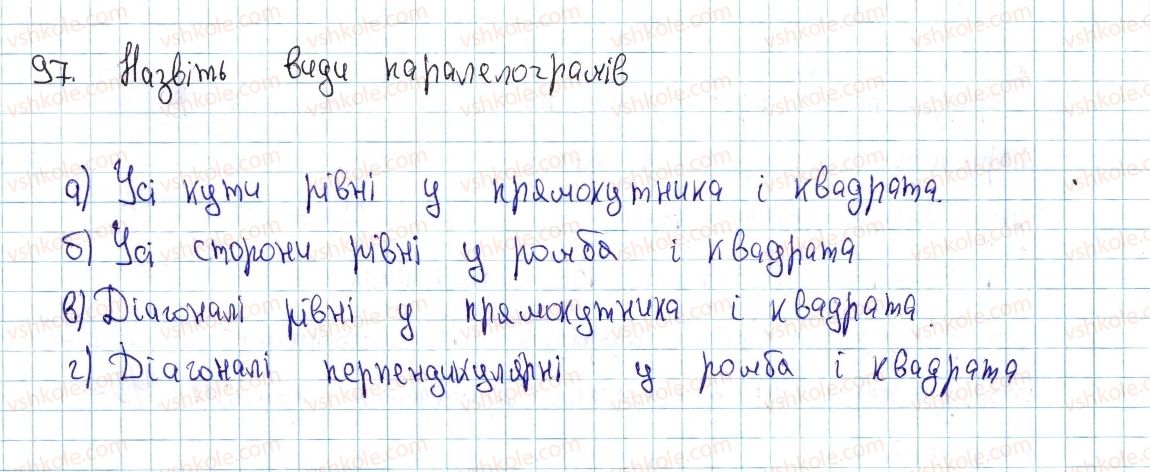 97. Назвіть види паралелограмів
а) Усі кути рівні у прямокутника і квадрата.
б) Усі сторони рівні у ромба і квадрата
в) Діагоналі рівні у прямокутника і квадрата.
г) Діагоналі перпендикулярні у ромба і квадрата